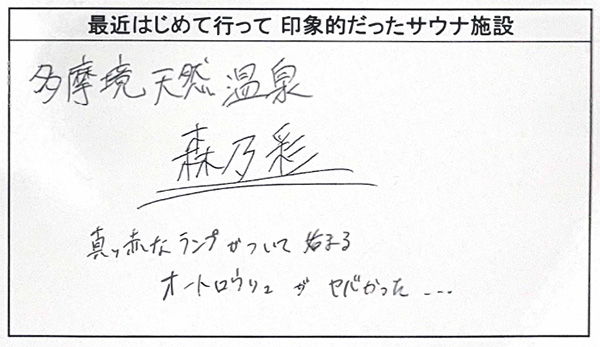 最近はじめて行って 印象的だったサウナ施設
多摩境天然温泉
森乃彩
真っ赤なランプがついて始まる
オートロウリュがヤバかった---